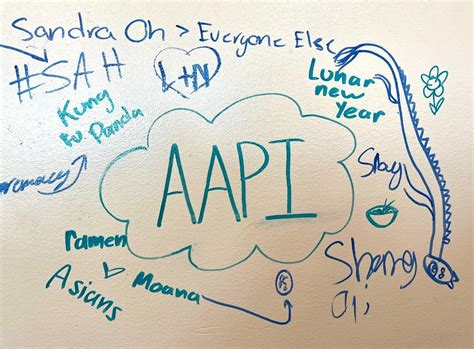 Sandra Oh > Everyone Else
#SAH
L+N
Lunar
new
Year
Kung
fu Panda
AAPI
Slay
ramen
Asians
Moana